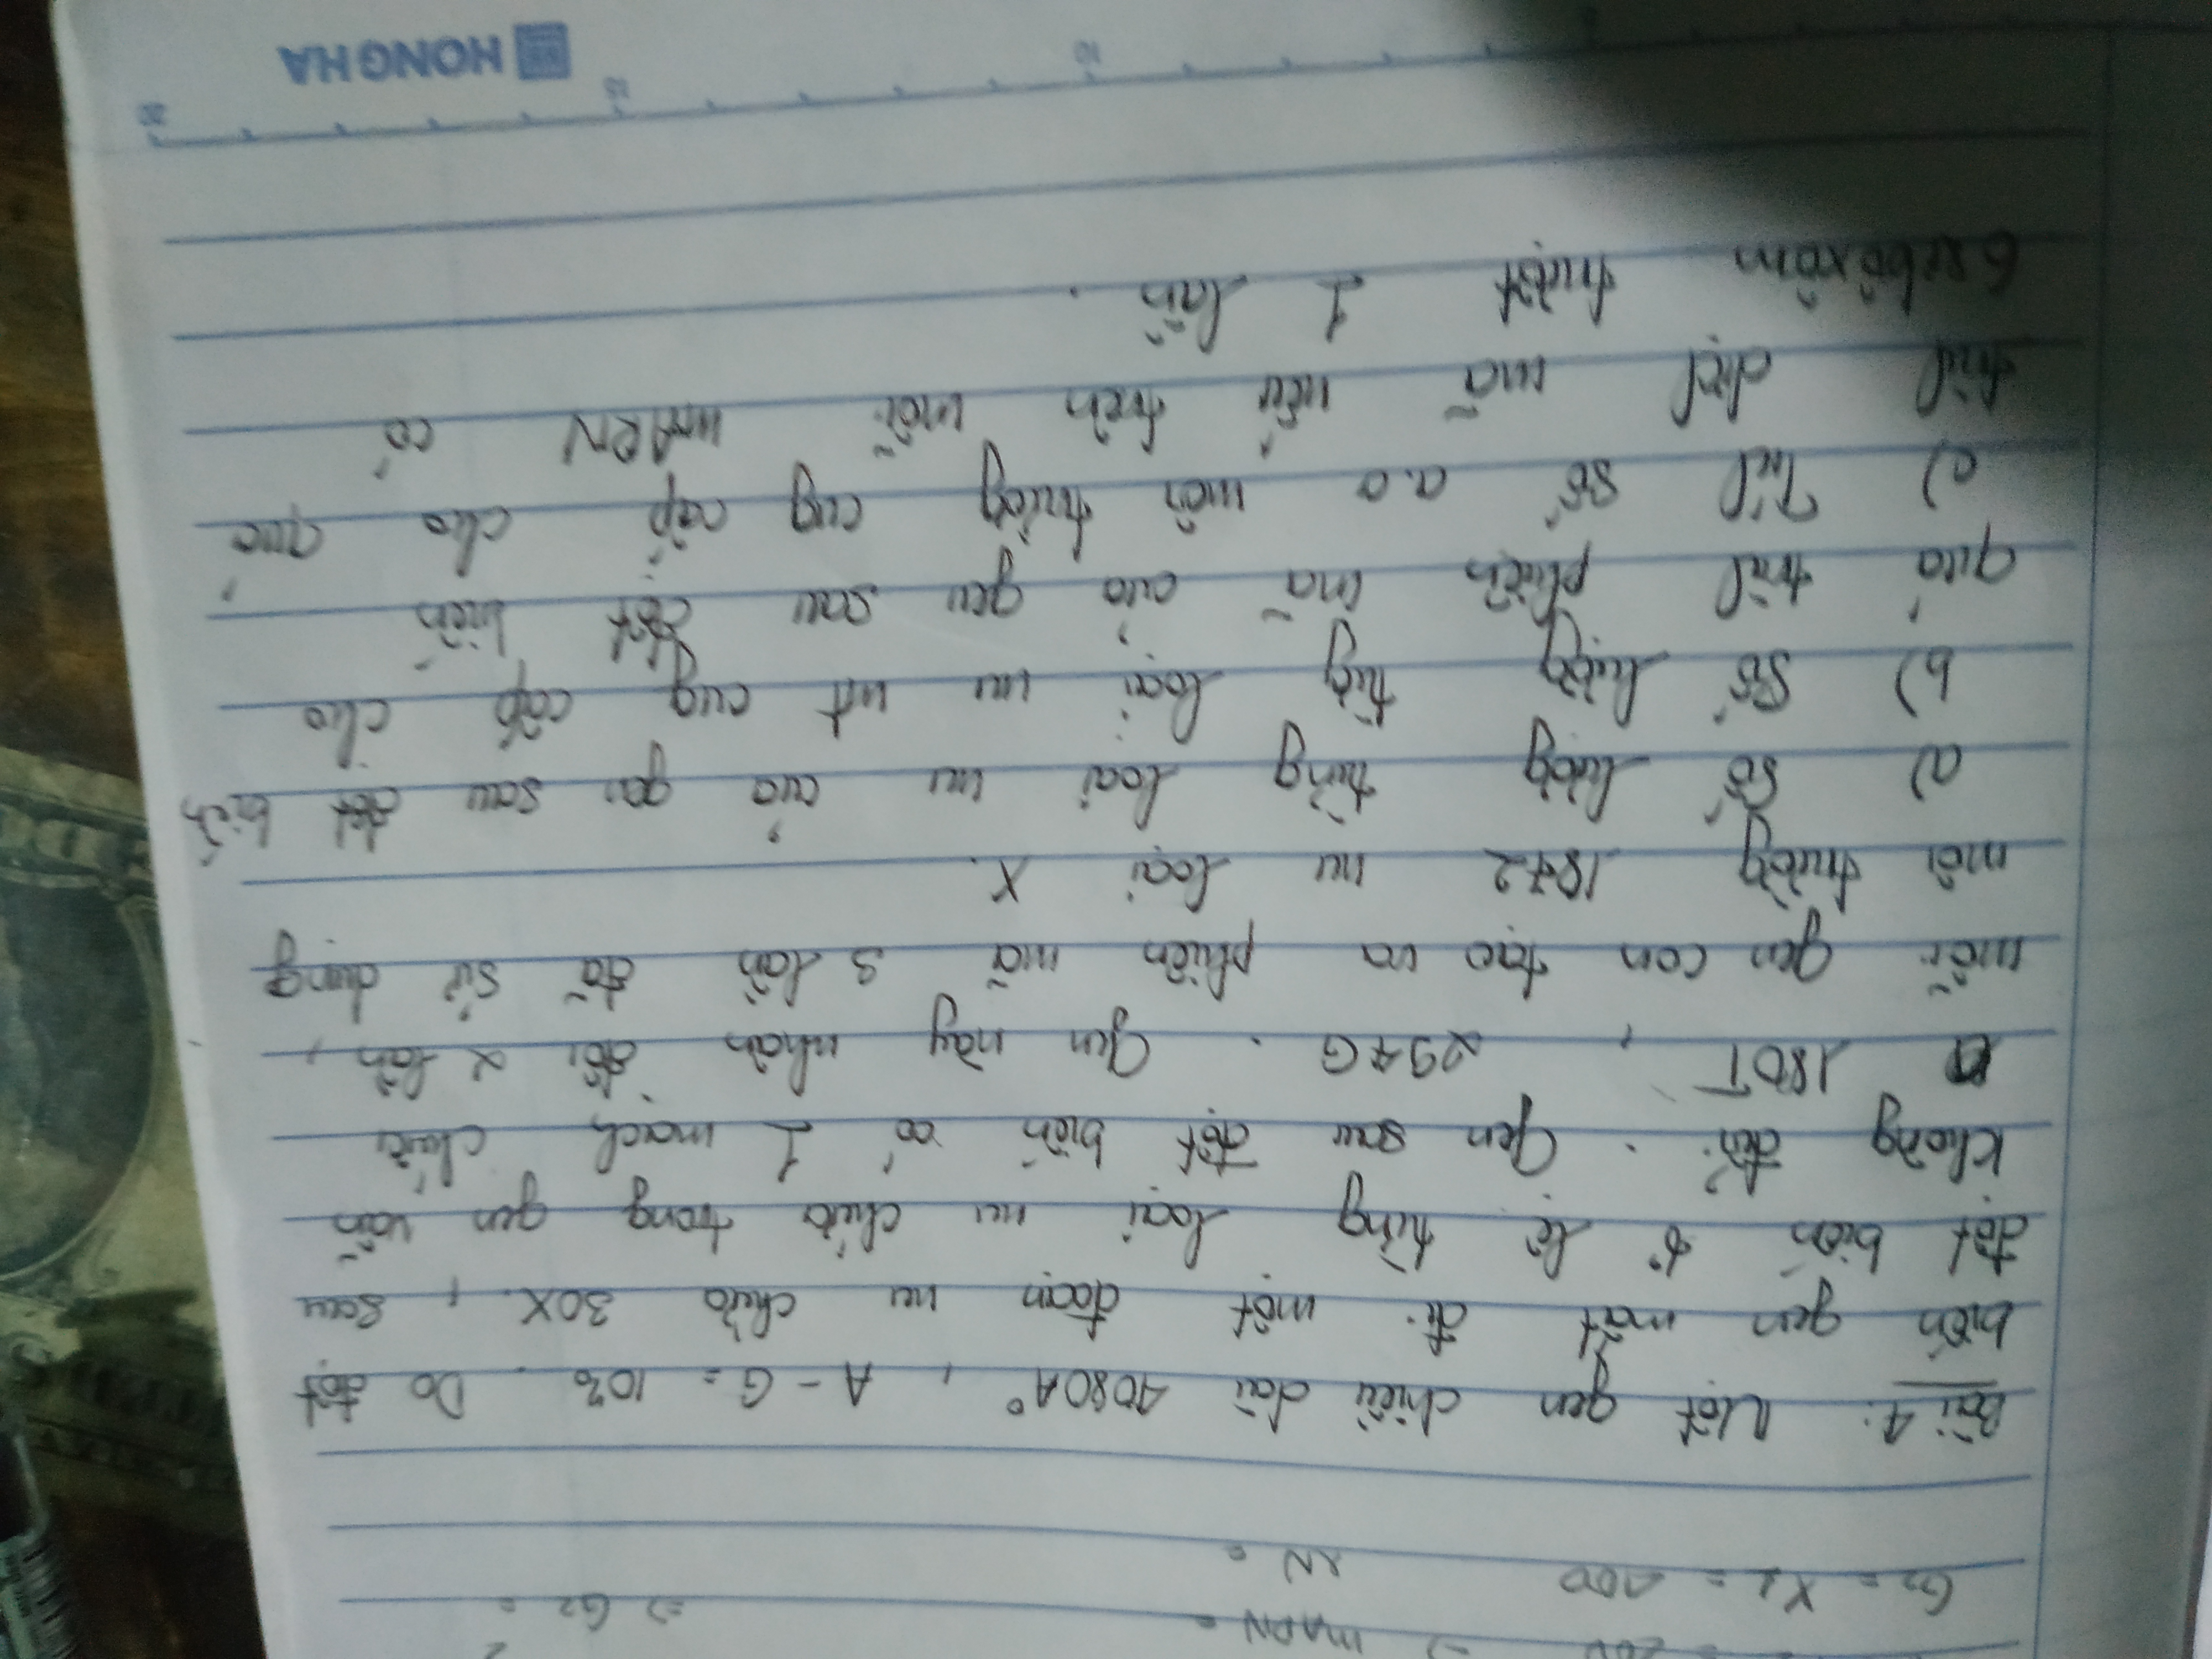 = 200 => mARN = => G2 = 2
G2 = X2 = 400 rN =
Bài 4: Một gen chiều dài 4080A°, A - G = 10%. Do đột
biến gen mất đi một đoạn nu chứa 30X, sau
đột biến tỉ lệ từng loại nu chứa trong gen vẫn
không đổi. Gen sau đột biến có 1 mạch chứa
180T, 294G. Gen này nhân đôi 2 lần,
mỗi gen con tạo ra phiên mã 3 lần đã sử dụng
môi trườg 1872 nu loại X.
a) Số lượg từng loại nu của gen sau đột biến
b) Số lượg từg loại nu mt cug cấp cho
quá trìl phiên mã của gen sau đột biến
c) Tíl số a.a môi trườg cug cấp cho quá
trìl dịcl mã nếu trên mỗi mARN có
6 ribôxôm trượt 1 lần.
HONG HA
10 15 20